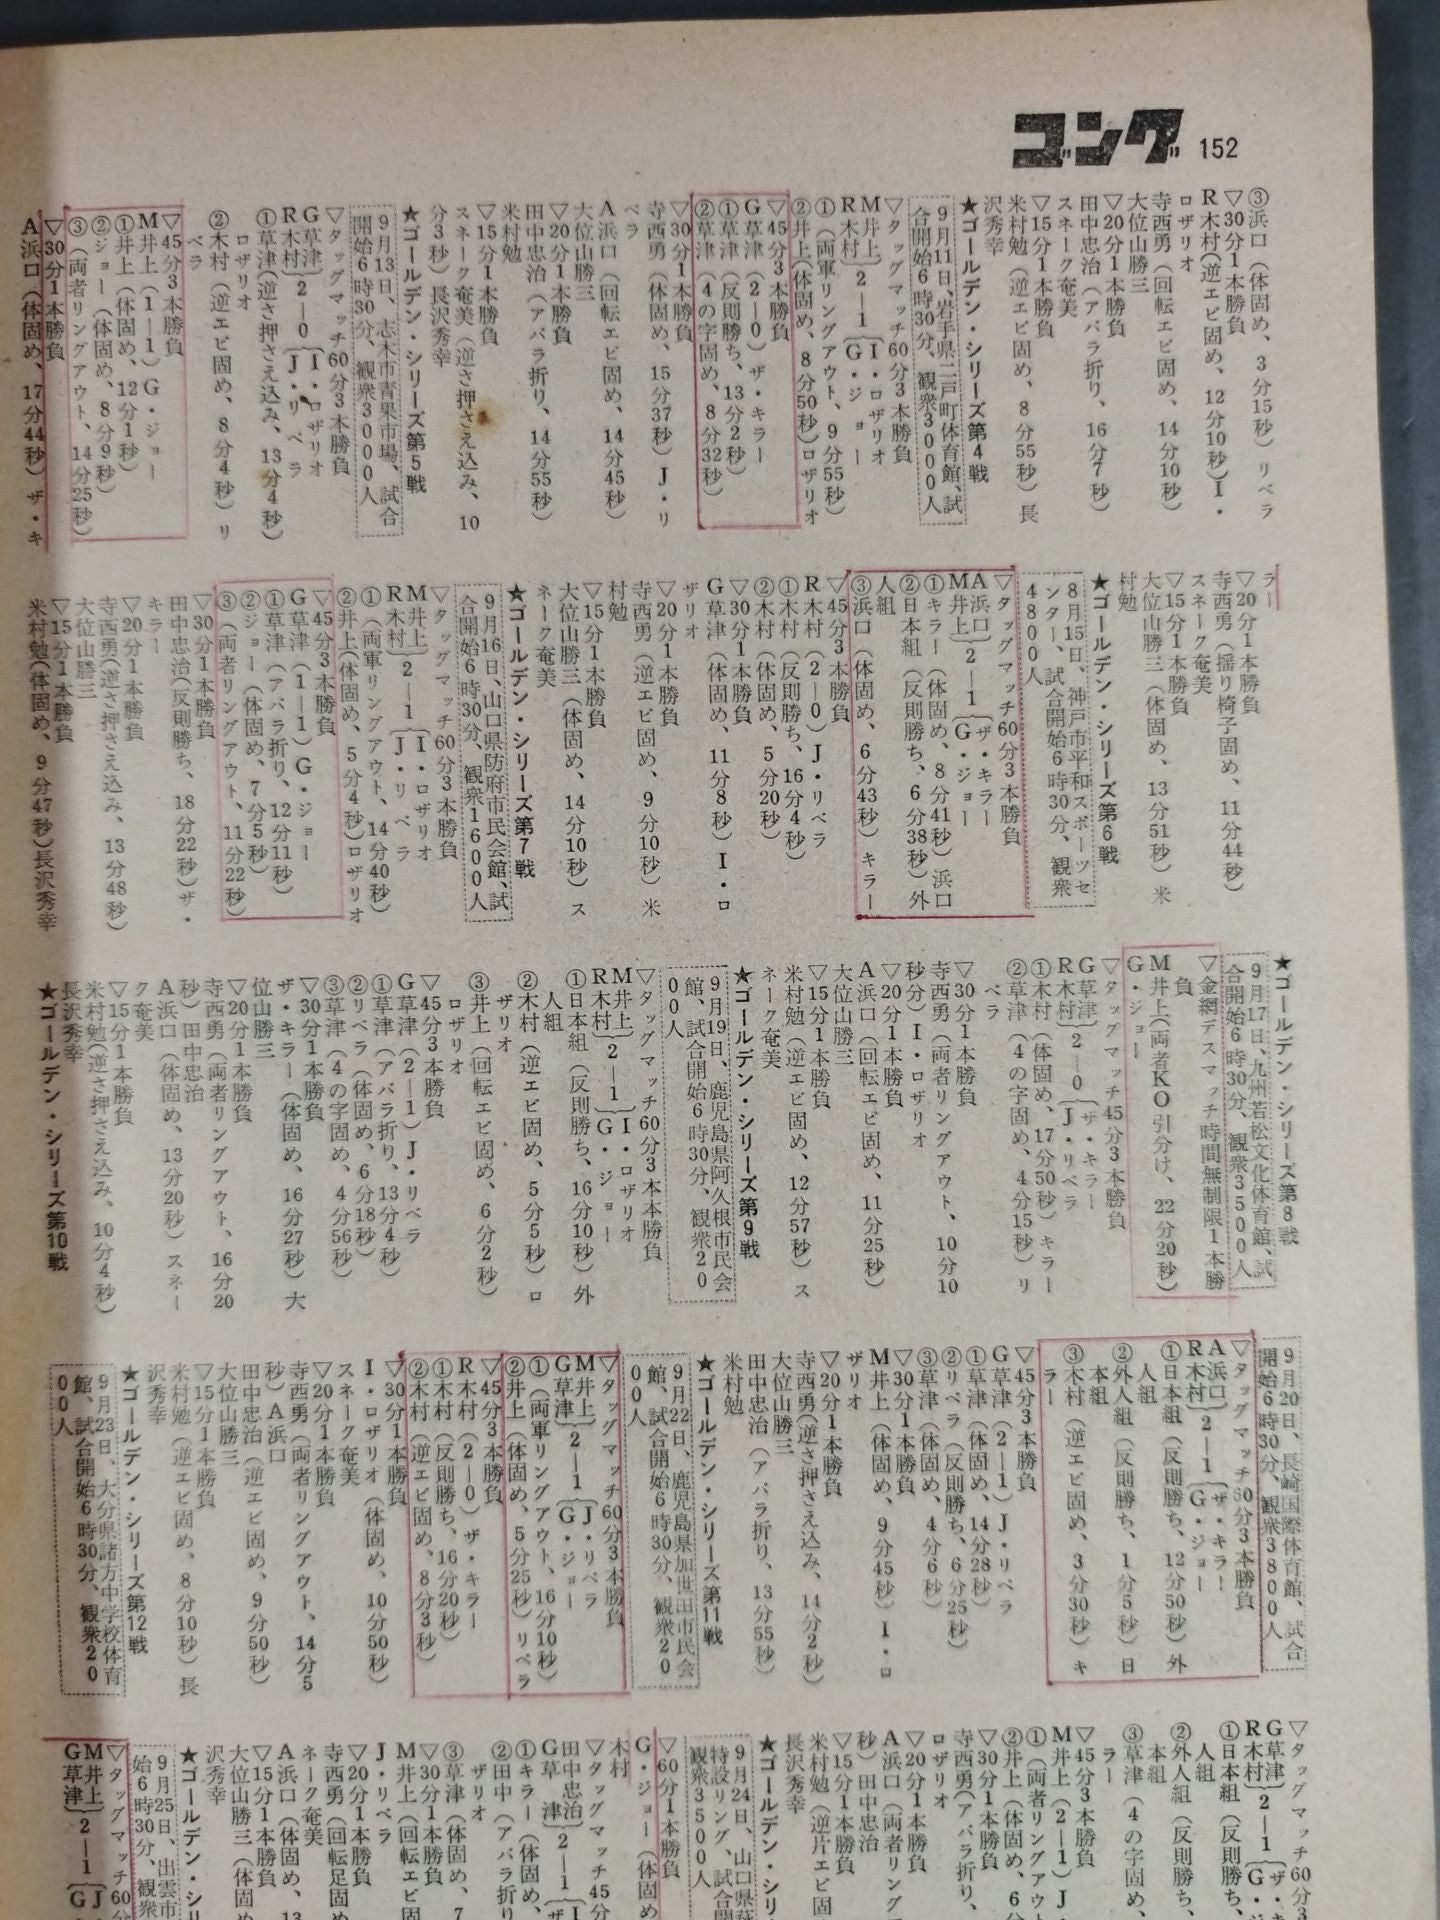 ゴング 152
③浜口（体固め、3分15秒）リベラ
▽30分1本勝負
R木村（逆エビ固め、12分10秒）I・
ロザリオ
寺西勇（回転エビ固め、14分10秒）
大位山勝三
▽20分1本勝負
田中忠治（アバラ折り、16分7秒）
スネーク奄美
▽15分1本勝負
米村勉（逆エビ固め、8分55秒）長
沢秀幸
★ゴールデン・シリーズ第4戦
9月11日、岩手県二戸町体育館、試
合開始6時30分、観衆3000人
▽タッグマッチ60分3本勝負
M井上｝2―1｛I・ロザリオ
R木村｝2―1｛G・ジョー
①（両軍リングアウト、9分55秒）
②井上（体固め、8分50秒）ロザリオ
▽45分3本勝負
G草津（2―0）ザ・キラー
①草津（反則勝ち、13分2秒）
②草津（4の字固め、8分32秒）
▽30分1本勝負
寺西勇（体固め、15分37秒）J・リ
ベラ
A浜口（回転エビ固め、14分45秒）
大位山勝三
▽20分1本勝負
田中忠治（アバラ折り、14分55秒）
米村勉
▽15分1本勝負
スネーク奄美（逆さ押さえ込み、10
分3秒）長沢秀幸
★ゴールデン・シリーズ第5戦
9月13日、志木市青果市場、試合
開始6時30分、観衆3000人
▽タッグマッチ60分3本勝負
G草津｝2―0｛I・ロザリオ
R木村｝2―0｛J・リベラ
①草津（逆さ押さえ込み、13分4秒）
ロザリオ
②木村（逆エビ固め、8分4秒）リ
ベラ
▽45分3本勝負
M井上（1―1）G・ジョー
①井上（体固め、12分1秒）
②ジョー（体固め、8分9秒）
③（両者リングアウト、14分25秒）
▽30分1本勝負
A浜口（体固め、17分44秒）ザ・キ
ラー
▽20分1本勝負
寺西勇（揺り椅子固め、11分44秒）
スネーク奄美
▽15分1本勝負
大位山勝三（体固め、13分51秒）米
村勉
★ゴールデン・シリーズ第6戦
8月15日、神戸市平和スポーツセ
ンター、試合開始6時30分、観衆
4800人
▽タッグマッチ60分3本勝負
A浜口｝2―1｛ザ・キラー
M井上｝2―1｛G・ジョー
①キラー（体固め、8分41秒）浜口
②日本組（反則勝ち、6分38秒）外
人組
③浜口（体固め、6分43秒）キラー
▽45分3本勝負
R木村（2―0）J・リベラ
①木村（反則勝ち、16分4秒）
②木村（体固め、5分20秒）
▽30分1本勝負
G草津（体固め、11分8秒）I・ロ
ザリオ
▽20分1本勝負
寺西勇（逆エビ固め、9分10秒）米
村勉
▽15分1本勝負
大位山勝三（体固め、14分10秒）ス
ネーク奄美
★ゴールデン・シリーズ第7戦
9月16日、山口県防府市民会館、試
合開始6時30分、観衆1600人
▽タッグマッチ60分3本勝負
M井上｝2―1｛I・ロザリオ
R木村｝2―1｛J・リベラ
①（両軍リングアウト、14分40秒）
②井上（体固め、5分4秒）ロザリオ
▽45分3本勝負
G草津（1―1）G・ジョー
①草津（アバラ折り、12分11秒）
②ジョー（体固め、7分5秒）
③（両者リングアウト、11分22秒）
▽30分1本勝負
田中忠治（反則勝ち、18分22秒）ザ・
キラー
▽20分1本勝負
寺西勇（逆さ押さえ込み、13分48秒）
大位山勝三
▽15分1本勝負
米村勉（体固め、9分47秒）長沢秀幸
★ゴールデン・シリーズ第8戦
9月17日、九州若松文化体育館、試
合開始6時30分、観衆3500人
▽金網デスマッチ時間無制限1本勝
負
M井上（両者KO引分け、22分20秒）
G・ジョー
▽タッグマッチ45分3本勝負
G草津｝2―0｛ザ・キラー
R木村｝2―0｛J・リベラ
①木村（体固め、17分50秒）キラー
②草津（4の字固め、4分15秒）リ
ベラ
▽30分1本勝負
寺西勇（両者リングアウト、10分10
秒分）I・ロザリオ
▽20分1本勝負
A浜口（回転エビ固め、11分25秒）
大位山勝三
▽15分1本勝負
米村勉（逆エビ固め、12分57秒）ス
ネーク奄美
★ゴールデン・シリーズ第9戦
9月19日、鹿児島県阿久根市民会
館、試合開始6時30分、観衆20
00人
▽タッグマッチ60分3本本勝負
M井上｝2―1｛I・ロザリオ
R木村｝2―1｛G・ジョー
①日本組（反則勝ち、16分10秒）外
人組
②木村（逆エビ固め、5分5秒）ロ
ザリオ
③井上（回転エビ固め、6分2秒）
ロザリオ
▽45分3本勝負
G草津（2―1）J・リベラ
①草津（アバラ折り、13分4秒）
②リベラ（体固め、6分18秒）
③草津（4の字固め、4分56秒）
▽30分1本勝負
ザ・キラー（体固め、16分27秒）大
位山勝三
▽20分1本勝負
寺西勇（両者リングアウト、16分20
秒）田中忠治
A浜口（体固め、13分20秒）スネー
ク奄美
▽15分1本勝負
米村勉（逆さ押さえ込み、10分4秒）
長沢秀幸
★ゴールデン・シリーズ第10戦
9月20日、長崎国際体育館、試合
開始6時30分、観衆3800人
▽タッグマッチ60分3本勝負
A浜口｝2―1｛ザ・キラー
R木村｝2―1｛G・ジョー
①日本組（反則勝ち、12分50秒）外
人組
②外人組（反則勝ち、1分5秒）日
本組
③木村（逆エビ固め、3分30秒）キ
ラー
▽45分3本勝負
G草津（2―1）J・リベラ
①草津（体固め、14分28秒）
②リベラ（反則勝ち、6分25秒）
③草津（体固め、4分6秒）
▽30分1本勝負
M井上（体固め、9分45秒）I・ロ
ザリオ
▽20分1本勝負
寺西勇（逆さ押さえ込み、14分2秒）
大位山勝三
田中忠治（アバラ折り、13分55秒）
米村勉
★ゴールデン・シリーズ第11戦
9月22日、鹿児島県加世田市民会
館、試合開始6時30分、観衆20
00人
▽タッグマッチ60分3本勝負
M井上｝2―1｛J・リベラ
G草津｝2―1｛G・ジョー
①（両軍リングアウト、16分10秒）
②井上（体固め、5分25秒）リベラ
▽45分3本勝負
R木村（2―0）ザ・キラー
①木村（反則勝ち、16分20秒）
②木村（逆エビ固め、8分3秒）
▽30分1本勝負
I・ロザリオ（体固め、10分50秒）
スネーク奄美
▽20分1本勝負
寺西勇（両者リングアウト、14分5
秒）A浜口
田中忠治（逆エビ固め、9分50秒）
大位山勝三
▽15分1本勝負
米村勉（逆エビ固め、8分10秒）長
沢秀幸
★ゴールデン・シリーズ第12戦
9月23日、大分県諸方中学校体育
館、試合開始6時30分、観衆20
00人
▽タッグマッチ60分3
G草津｝2―1｛ザ・キ
R木村｝2―1｛G・ジ
①日本組（反則勝ち、
人組
②外人組（反則勝ち、
本組
③草津（4の字固め、
ラー
▽45分3本勝負
M井上（2―1）J・
①（両者リングアウ
②井上（体固め、6分
▽30分1本勝負
寺西勇（アバラ折り、
ロザリオ
▽20分1本勝負
A浜口（両者リング
秒）田中忠治
▽15分1本勝負
米村勉（逆片エビ
長沢秀幸
★ゴールデン・シリ
9月24日、山口県萩
特設リング、試合開
観衆3500人
▽60分1本勝負
G・ジョー（体固め
木村
▽タッグマッチ45分
田中忠治｝2―1｛I
G草津｝2―1｛ザ
①キラー（体固め、
②田中（アバラ折り
ザリオ
③草津（体固め、7
▽30分1本勝負
M井上（回転エビ固
J・リベラ
▽20分1本勝負
寺西勇（回転足固め
ネーク奄美
A浜口（体固め、13
▽15分1本勝負
大位山勝三（体固め
沢秀幸
★ゴールデン・シ
9月25日、出雲市
始6時30分、観衆
▽タッグマッチ60分
M井上｝2―1｛J
G草津｝2―1｛G